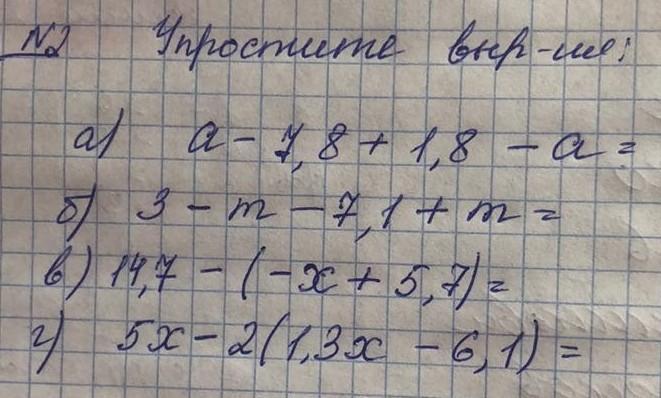 N2 Упростите выр-ие:
а) a - 7,8 + 1,8 - a =
б) 3 - m - 7,1 + m =
в) 14,7 - (-x + 5,7) =
г) 5x - 2(1,3x - 6,1) =